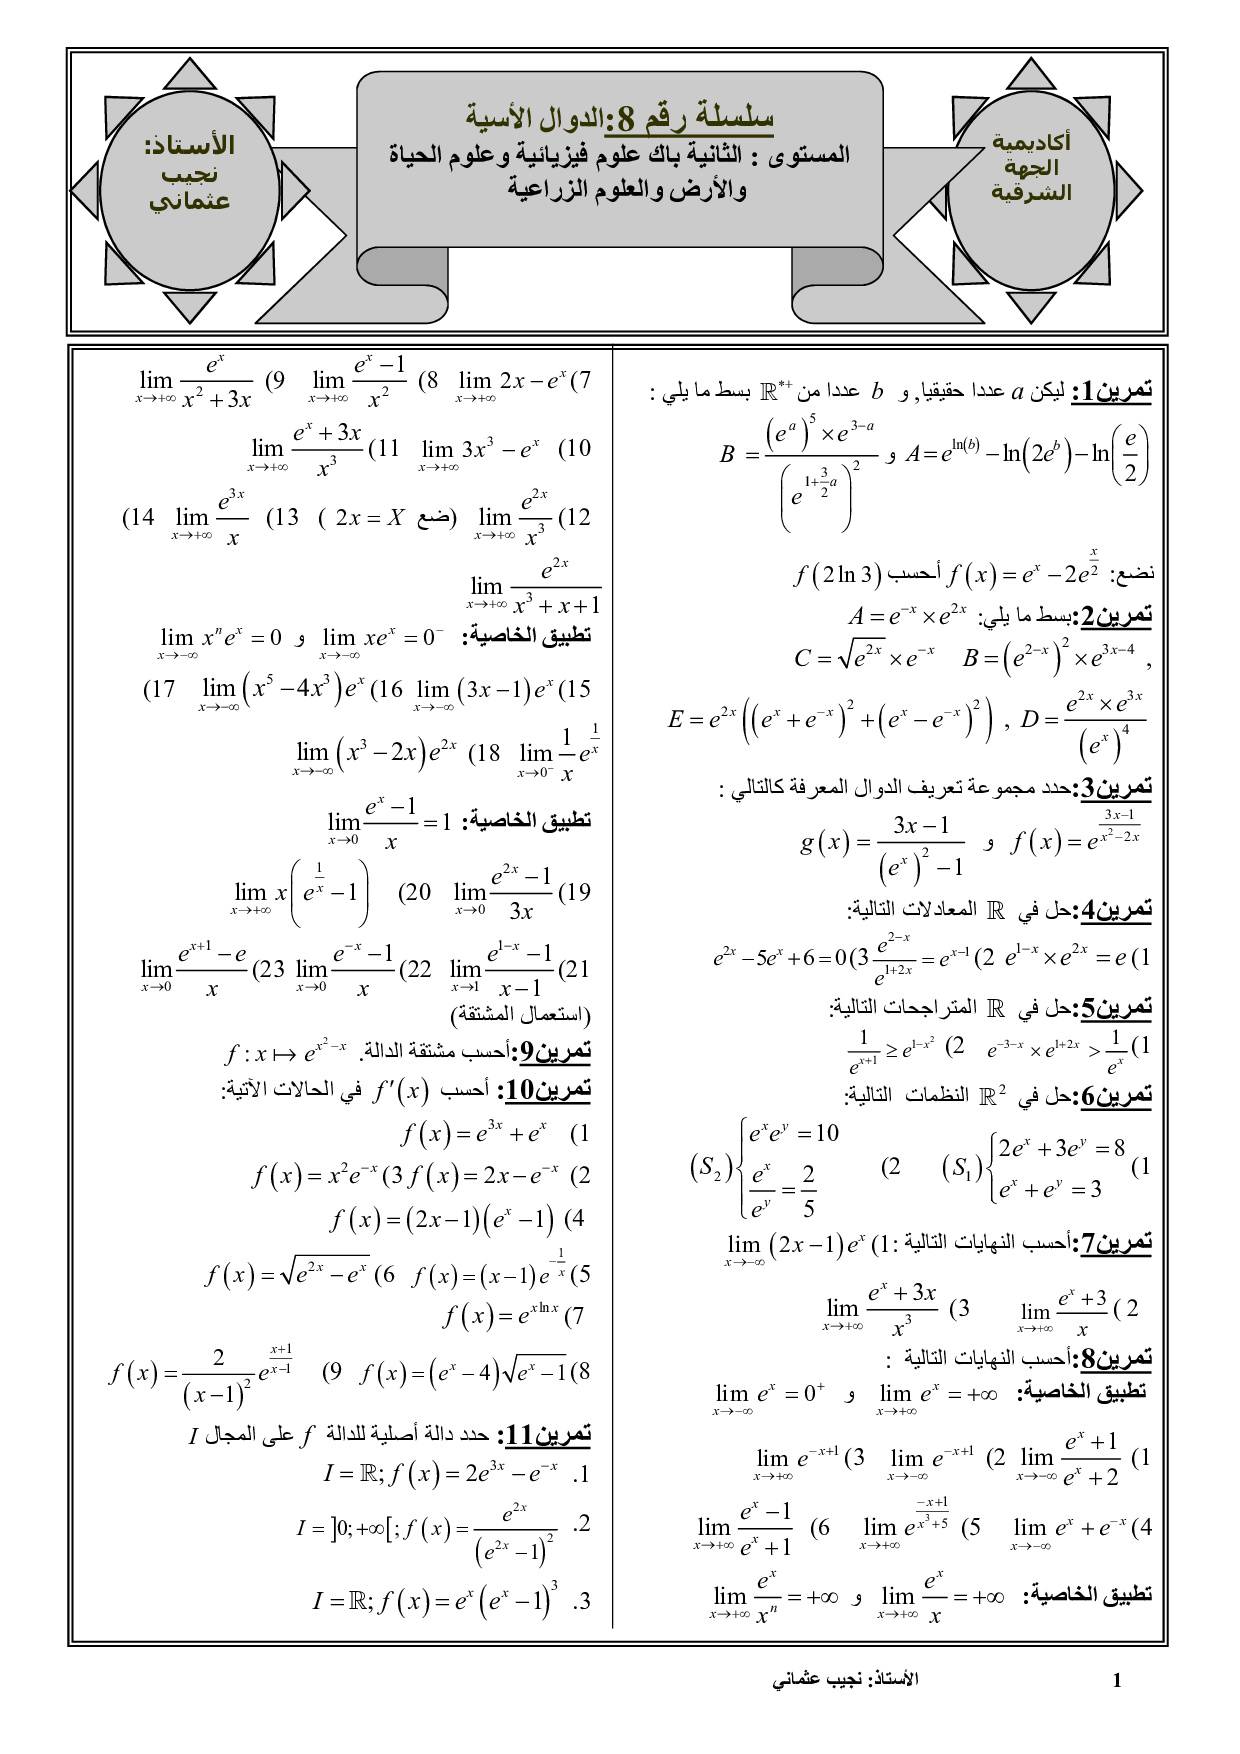 أكاديمية
الجهة
الشرقية
سلسلة رقم 8:الدوال الأسية
المستوى : الثانية باك علوم فيزيائية وعلوم الحياة
والأرض والعلوم الزراعية
الأستاذ:
نجيب
عثماني
تمرين1: ليكن a عددا حقيقيا, و b عددا من ℝ*⁺ بسط ما يلي :
A = e^{ln(b)} − ln(2e^b) − ln(e/2) و B = ((e^a)^5 × e^{3−a}) / (e^{1+(3/2)a})^2
نضع: f(x) = e^x − 2e^{x/2} أحسب f(2ln3)
تمرين2:بسط ما يلي: A = e^{−x} × e^{2x}
, B = (e^{2−x})^2 × e^{3x−4} C = √(e^{2x}) × e^{−x}
D = (e^{2x} × e^{3x}) / (e^x)^4 , E = e^{2x}((e^x + e^{−x})^2 + (e^x − e^{−x})^2)
تمرين3:حدد مجموعة تعريف الدوال المعرفة كالتالي :
f(x) = e^{(3x−1)/(x^2−2x)} و g(x) = (3x−1)/((e^x)^2 − 1)
تمرين4:حل في ℝ المعادلات التالية:
1) e^{1−x} × e^{2x} = e 2) e^{2−x}/e^{1+2x} = e^{x−1} 3) e^{2x} − 5e^x + 6 = 0
تمرين5:حل في ℝ المتراجحات التالية:
1) e^{−3−x} × e^{1+2x} > 1/e^x 2) 1/e^{x+1} ≥ e^{1−x^2}
تمرين6:حل في ℝ² النظمات التالية:
1) (S₁) { 2e^x + 3e^y = 8 ; e^x + e^y = 3 2) (S₂) { e^x e^y = 10 ; e^x/e^y = 2/5
تمرين7:أحسب النهايات التالية :1) lim_{x→−∞} (2x−1)e^x
2) lim_{x→+∞} (e^x + 3)/x 3) lim_{x→+∞} (e^x + 3x)/x^3
تمرين8:أحسب النهايات التالية :
تطبيق الخاصية: lim_{x→+∞} e^x = +∞ و lim_{x→−∞} e^x = 0⁺
1) lim_{x→−∞} (e^x + 1)/(e^x + 2) 2) lim_{x→−∞} e^{−x+1} 3) lim_{x→+∞} e^{−x+1}
4) lim_{x→−∞} e^x + e^{−x} 5) lim_{x→+∞} e^{(−x+1)/(x^3+5)} 6) lim_{x→+∞} (e^x − 1)/(e^x + 1)
تطبيق الخاصية: lim_{x→+∞} e^x/x = +∞ و lim_{x→+∞} e^x/x^n = +∞
7) lim_{x→+∞} 2x − e^x 8) lim_{x→+∞} (e^x − 1)/x^2 9) lim_{x→+∞} e^x/(x^2 + 3x)
10) lim_{x→+∞} 3x^3 − e^x 11) lim_{x→+∞} (e^x + 3x)/x^3
12) lim_{x→+∞} e^{2x}/x^3 (ضع 2x = X ) 13) lim_{x→+∞} e^{3x}/x 14)
lim_{x→+∞} e^{2x}/(x^3 + x + 1)
تطبيق الخاصية: lim_{x→−∞} xe^x = 0⁻ و lim_{x→−∞} x^n e^x = 0
15) lim_{x→−∞} (3x−1)e^x 16) lim_{x→−∞} (x^5 − 4x^3)e^x 17)
lim_{x→0⁻} (1/x) e^{1/x} 18) lim_{x→−∞} (x^3 − 2x)e^{2x}
تطبيق الخاصية: lim_{x→0} (e^x − 1)/x = 1
19) lim_{x→0} (e^{2x} − 1)/(3x) 20) lim_{x→+∞} x(e^{1/x} − 1)
21) lim_{x→1} (e^{1−x} − 1)/(x−1) 22) lim_{x→0} (e^{−x} − 1)/x 23) lim_{x→0} (e^{x+1} − e)/x
(استعمال المشتقة)
تمرين9:أحسب مشتقة الدالة. f : x ↦ e^{x^2−x}
تمرين10: أحسب f′(x) في الحالات الآتية:
1) f(x) = e^{3x} + e^x
2) f(x) = 2x − e^{−x} 3) f(x) = x^2 e^{−x}
4) f(x) = (2x−1)(e^x − 1)
5) f(x) = (x−1)e^{−1/x} 6) f(x) = √(e^{2x} − e^x)
7) f(x) = e^{x ln x}
8) f(x) = (e^x − 4)√(e^x − 1) 9) f(x) = 2/(x−1)^2 e^{(x+1)/(x−1)}
تمرين11: حدد دالة أصلية للدالة f على المجال I
1. I = ℝ; f(x) = 2e^{3x} − e^{−x}
2. I = ]0;+∞[; f(x) = e^{2x}/(e^{2x} − 1)^2
3. I = ℝ; f(x) = e^x(e^x − 1)^3
الأستاذ: نجيب عثماني
1